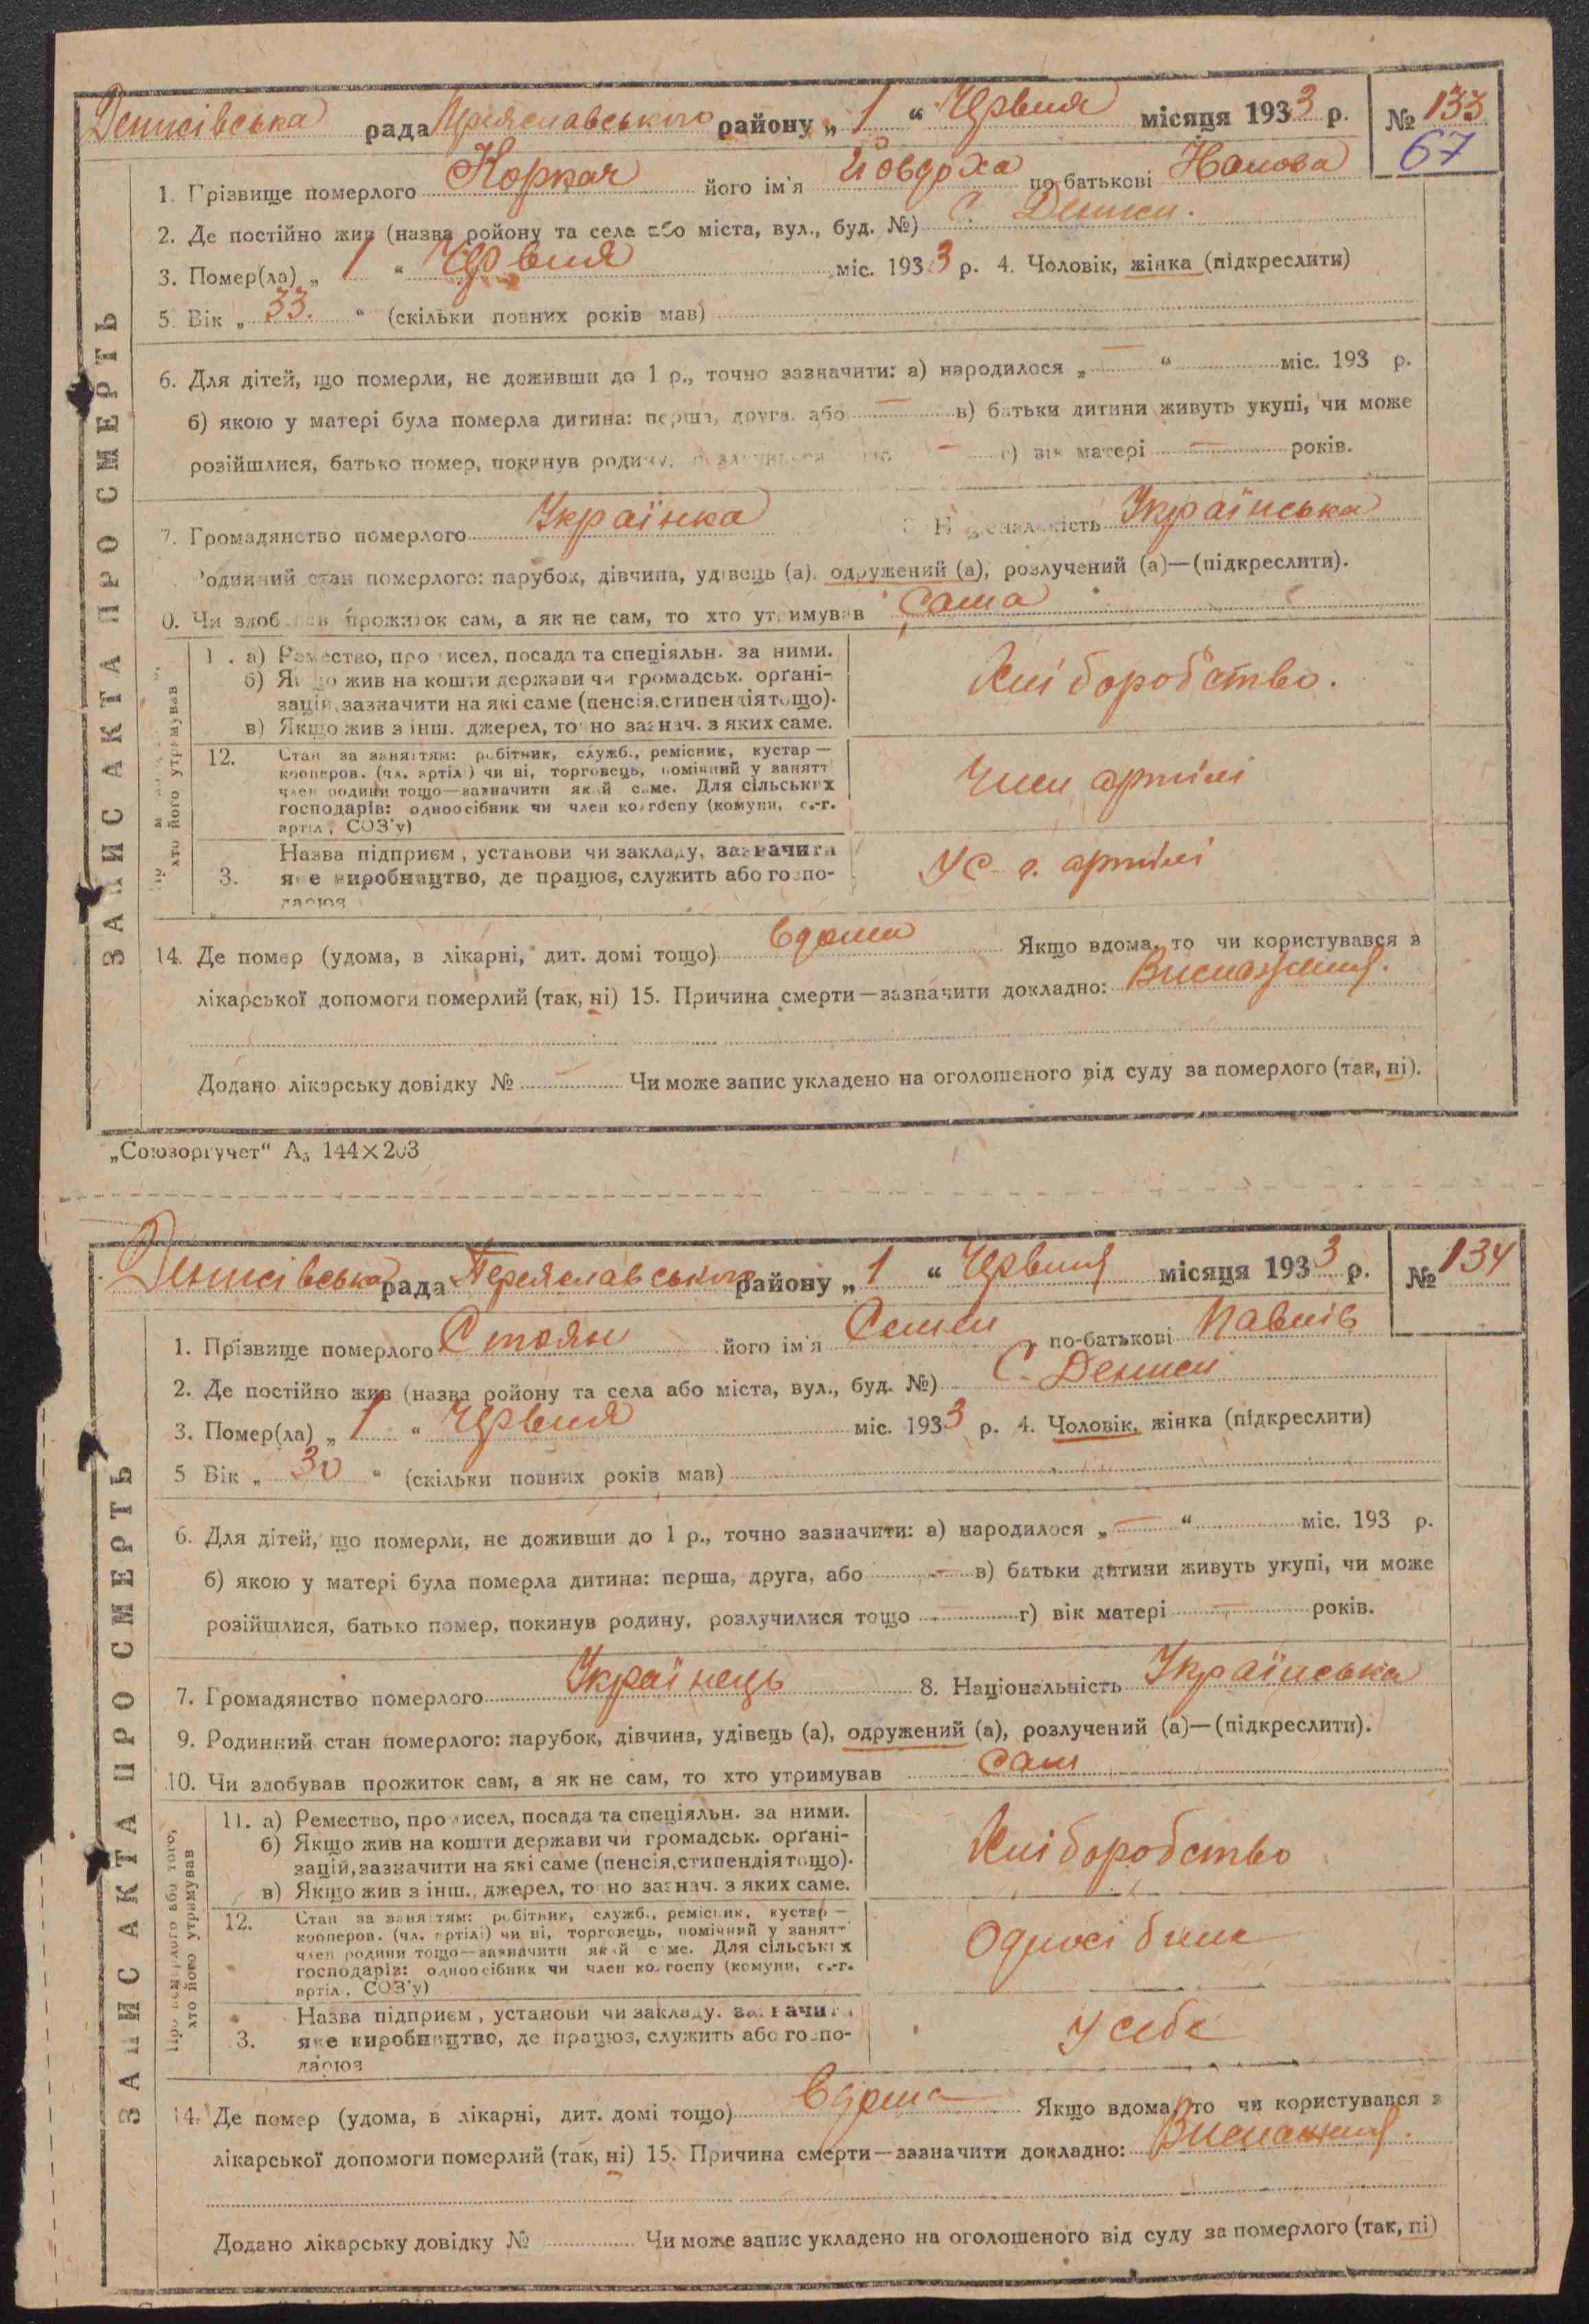 Денисівська рада Переяславського району „ 1 “ Червня місяця 1933 р. № 133
67
1. Прізвище померлого Коркач його ім'я Йовдоха по батькові
2. Де постійно жив (назва ройону та села або міста, вул., буд. №) с. Дениси.
3. Помер(ла) „ 1 “ Червня міс. 1933 р. 4. Чоловік, жінка (підкреслити)
5. Вік „ 33. “ (скільки повних років мав)
6. Для дітей, що померли, не доживши до 1 р., точно зазначити: а) народилося „ — “ міс. 193 р.
б) якою у матері була померла дитина: перша, друга, або — в) батьки дитини живуть укупі, чи може
розійшлися, батько помер, покинув родину, — г) вік матері — років.
7. Громадянство померлого Українка Українська
Родинний стан померлого: парубок, дівчина, удівець (а), одружений (а), розлучений (а)—(підкреслити).
0. Чи здобував прожиток сам, а як не сам, то хто утримував Сама
а) Ремество, промисел, посада та спеціяльн. за ними.
б) Якщо жив на кошти держави чи громадськ. орґані-
зацій, зазначити на які саме (пенсія, стипендія тощо).
в) Якщо жив з інш. джерел, точно зазнач. з яких саме.
Хліборобство.
12. Стан за заняттям: робітник, служб., ремісник, кустар —
кооперов. (чл. артілі) чи ні, торговець, помічний у занятт
член родини тощо—зазначити який саме. Для сільських
господарів: одноосібник чи член колгоспу (комуни, с.-г.
артіл., СОЗ'у)
Член артілі
3. Назва підприєм., установи чи закладу, зазначити
яке виробництво, де працює, служить або госпо-
дарює
У с. г. артілі
хто його утримував
14. Де помер (удома, в лікарні, дит. домі тощо) вдома Якщо вдома, то чи користувався з
лікарської допомоги померлий (так, ні) 15. Причина смерти—зазначити докладно: Виснаження.
Додано лікарську довідку № Чи може запис укладено на оголошеного від суду за померлого (так, ні).
ЗАПИС АКТА ПРО СМЕРТЬ
„Союзоргучет“ А₅ 144×203
Денисівська рада Переяславського району „ 1 “ Червня місяця 1933 р. № 134
1. Прізвище померлого Стоян його ім'я Семен по-батькові Павлів
2. Де постійно жив (назва ройону та села або міста, вул., буд. №) С. Дениси
3. Помер(ла) „ 1 “ Червня міс. 1933 р. 4. Чоловік, жінка (підкреслити)
5 Вік „ 30 “ (скільки повних років мав)
6. Для дітей, що померли, не доживши до 1 р., точно зазначити: а) народилося „ — “ міс. 193 р.
б) якою у матері була померла дитина: перша, друга, або — в) батьки дитини живуть укупі, чи може
розійшлися, батько помер, покинув родину, розлучилися тощо — г) вік матері — років.
7. Громадянство померлого Українець 8. Національність Українська
9. Родинний стан померлого: парубок, дівчина, удівець (а), одружений (а), розлучений (а)—(підкреслити).
10. Чи здобував прожиток сам, а як не сам, то хто утримував Сам
11. а) Ремество, промисел, посада та спеціяльн. за ними.
б) Якщо жив на кошти держави чи громадськ. орґані-
зацій, зазначити на які саме (пенсія, стипендія тощо).
в) Якщо жив з інш., джерел, точно зазнач. з яких саме.
Хліборобство
12. Стан за заняттям: робітник, служб., ремісник, кустар —
кооперов. (чл. артілі) чи ні, торговець, помічний у занятт
член родини тощо—зазначити який саме. Для сільських
господарів: одноосібник чи член колгоспу (комуни, с.-г.
артіл., СОЗ'у)
Одноосібник
3. Назва підприєм., установи чи закладу, зазначити
яке виробництво, де працює, служить або госпо-
дарює
У себе
Про померлого або того,
хто його утримував
14. Де помер (удома, в лікарні, дит. домі тощо) Вдома Якщо вдома, то чи користувався з
лікарської допомоги померлий (так, ні) 15. Причина смерти—зазначити докладно: Виснаження.
Додано лікарську довідку № Чи може запис укладено на оголошеного від суду за померлого (так, ні)
ЗАПИС АКТА ПРО СМЕРТЬ